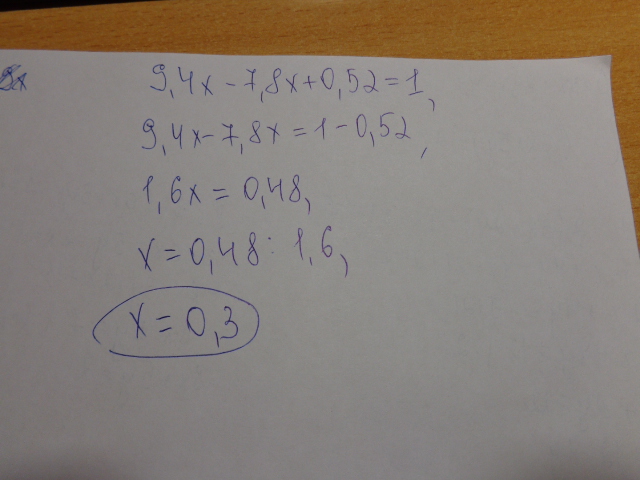 9,4x-7,8x+0,52=1,
9,4x-7,8x=1-0,52,
1,6x=0,48,
x=0,48:1,6,
x=0,3